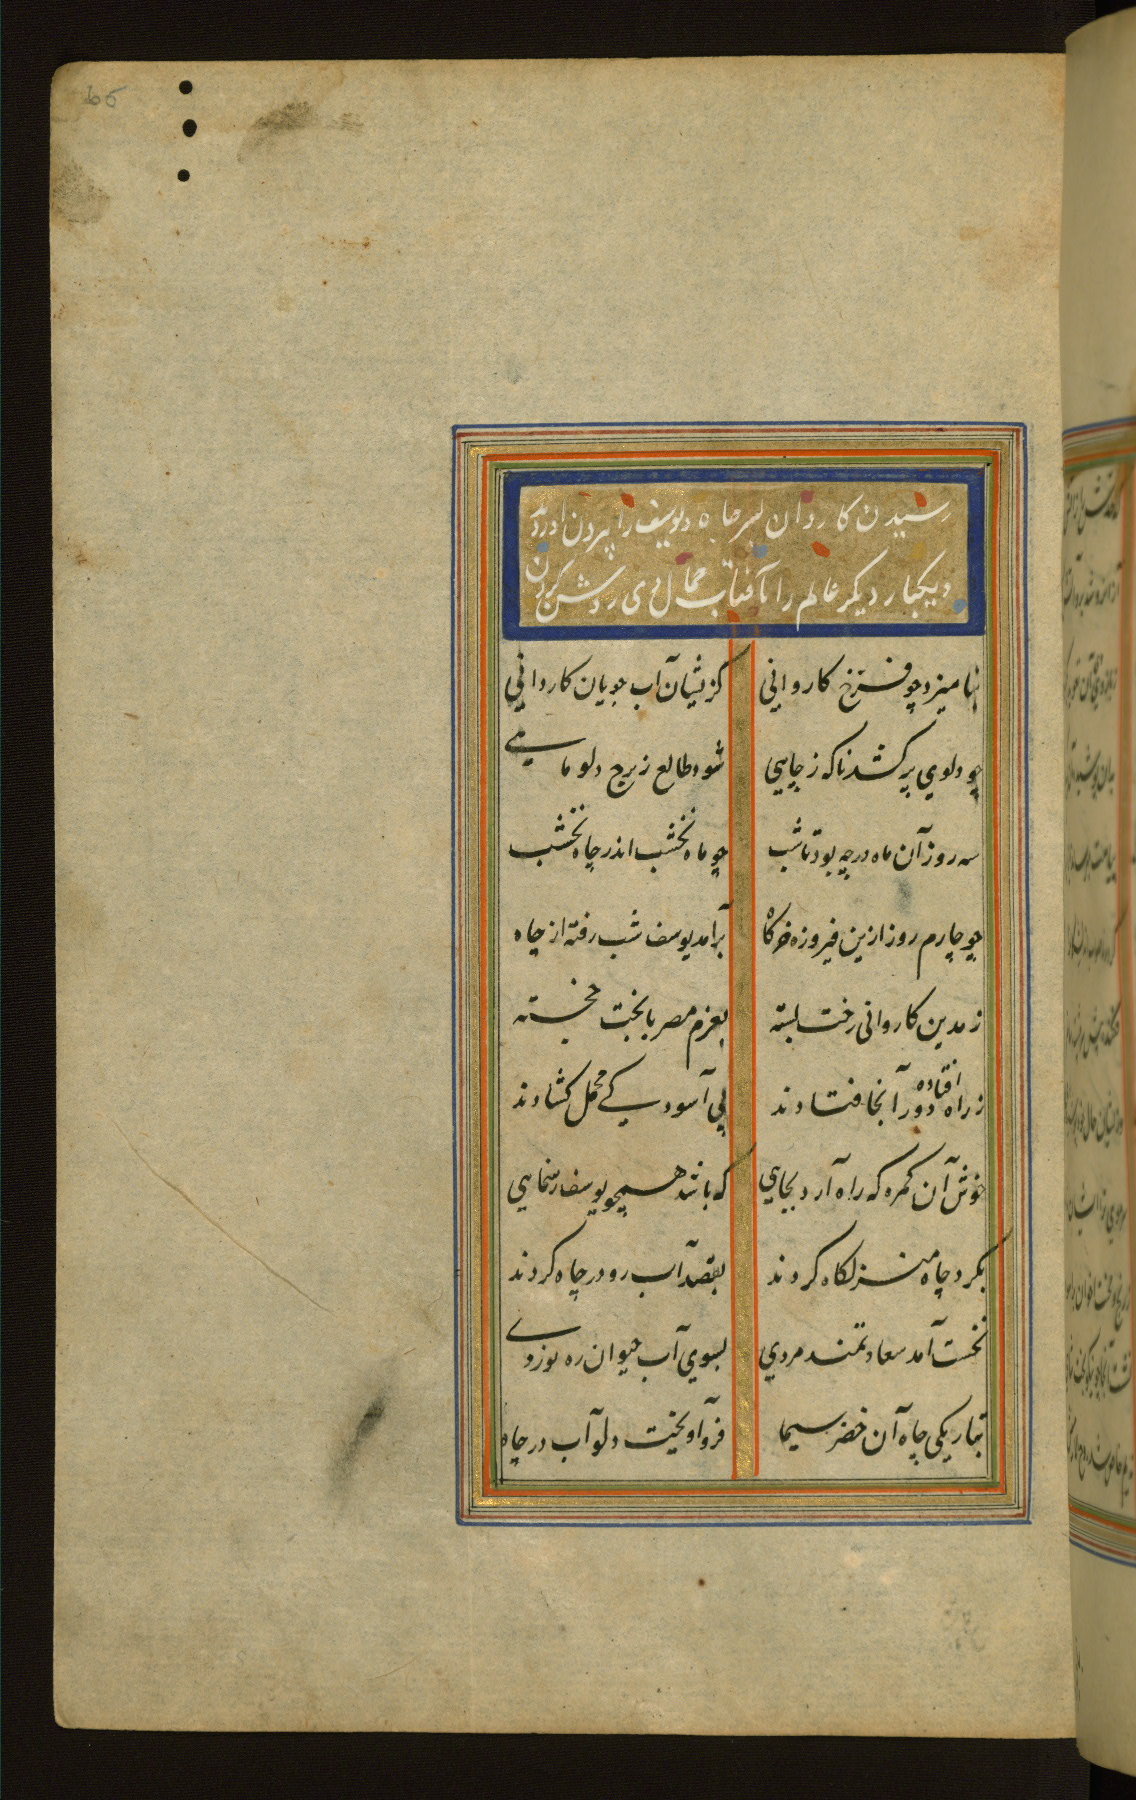 65
رسیدن کاروان بسر چاه و یوسف را بیرون آوردن
و یکبار دیگر عالم را بآفتاب جمال وی روشن کردن
بنامیزد چو فرخ کاروانی کزیشان آب جویان کاروانی
چو دلوی برکشد ناکه ز چاهی شود طالع ز برج دلو ماهی
سه روز آن ماه در چه بود تا شب چو ماه نخشب اندر چاه نخشب
چو چارم روز ازین فیروزه خرکاه برآمد یوسف شب رفته از چاه
ز مدین کاروانی رخت بسته بعزم مصر با بخت خجسته
ز راه افتاده دور آنجا فتادند پی آسودکی محمل کشادند
خوش آن کمره که راه آرد بجایی که باشد همچو یوسف رهنمایی
بکرد چاه منزلکاه کردند بقصد آب رو در چاه کردند
نخست آمد سعادتمند مردی بسوی آب حیوان ره نوردی
بتاریکی چاه آن خضر سیما فرو آویخت دلو آب در چاه